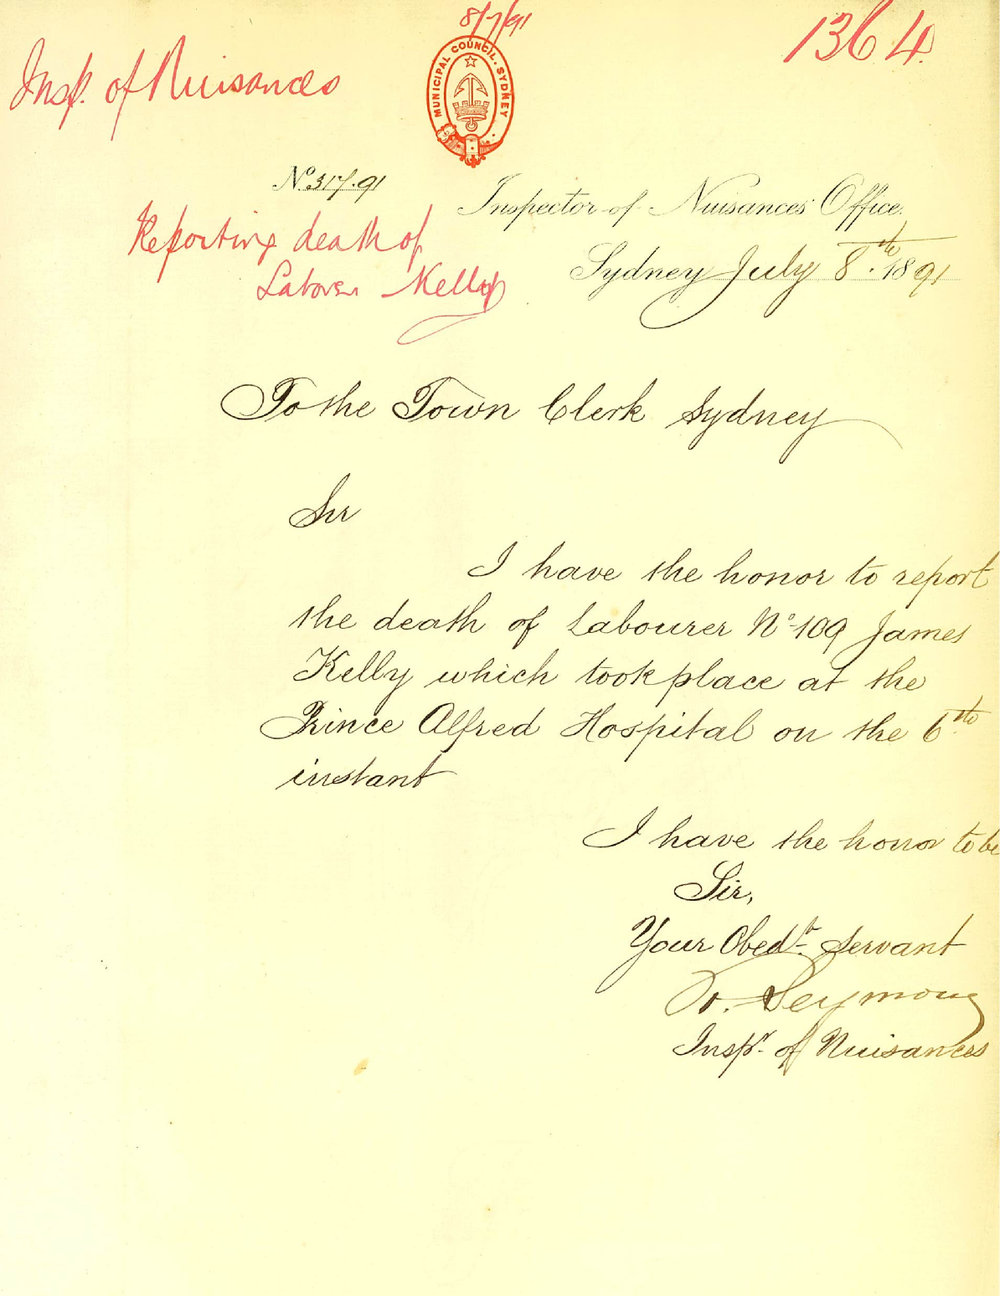 8/7/91
1364.
Insp. of Nuisances
MUNICIPAL COUNCIL. SYDNEY
No 317.91
Inspector of Nuisances' Office.
Reporting death of
Laborer Kelly
Sydney July 8th 1891
To the Town Clerk Sydney
Sir
I have the honor to report
the death of Labourer No 109 James
Kelly which took place at the
Prince Alfred Hospital on the 6th
instant
I have the honor to be
Sir,
Your Obedt Servant
Seymour
Inspr of Nuisances